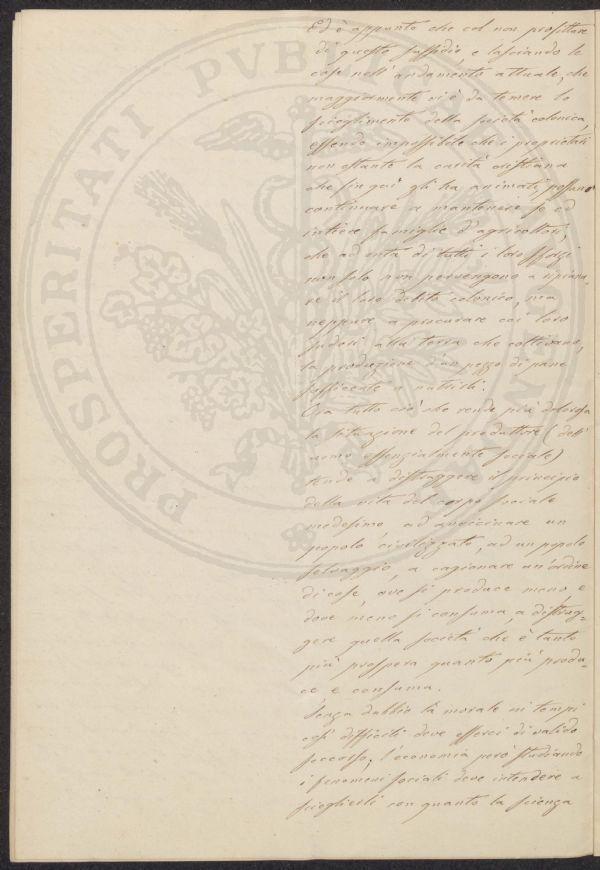 Ed è appunto che col non profittare
di questo sussidio e lasciando le
cose nell'andamento attuale, che
maggiormente vi è da temere lo
scioglimento della società colonica,
essendo impossibile che i proprietari
non ostante la carità cristiana
che fin qui gli ha animati, possano
continuare a mantenere se ed
intiere famiglie d'agricoltori,
che ad onta di tutti i loro sforzi
non solo non pervengono a ripiana-
re il loro debito colonico, ma
neppure a procurare coi loro
sudori alla terra che coltivano,
la produzione d'un pezzo di pane
sufficente a nutrirli.
Ora tutto ciò che rende più dolorosa
la situazione del produttore (dell'
uomo essenzialmente sociale)
tende a distruggere il principio
della vita del corpo sociale
medesimo, ad avvicinare un
popolo civilizzato, ad un popolo
selvaggio, a cagionare un'ordine
di cose, ove si produce meno, e
dove meno si consuma, a distrug-
gere quella società che è tanto
più prospera quanto più produ-
ce e consuma.
Senza dubbio la morale in tempi
così difficili deve esserci di valido
soccorso; l'economia però studiando
i fenomeni sociali deve intendere a
scioglierli con quanto la scienza
PROSPERITATI PVBLICAE